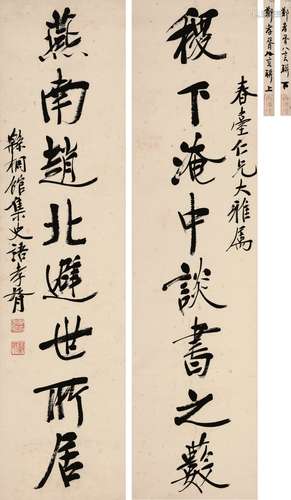 鄭孝胥八言聯下
鄭孝胥八言聯上
春臺仁兄大雅屬
稷下淹中談書之藪
燕南趙北避世所居
桐館集史語孝胥